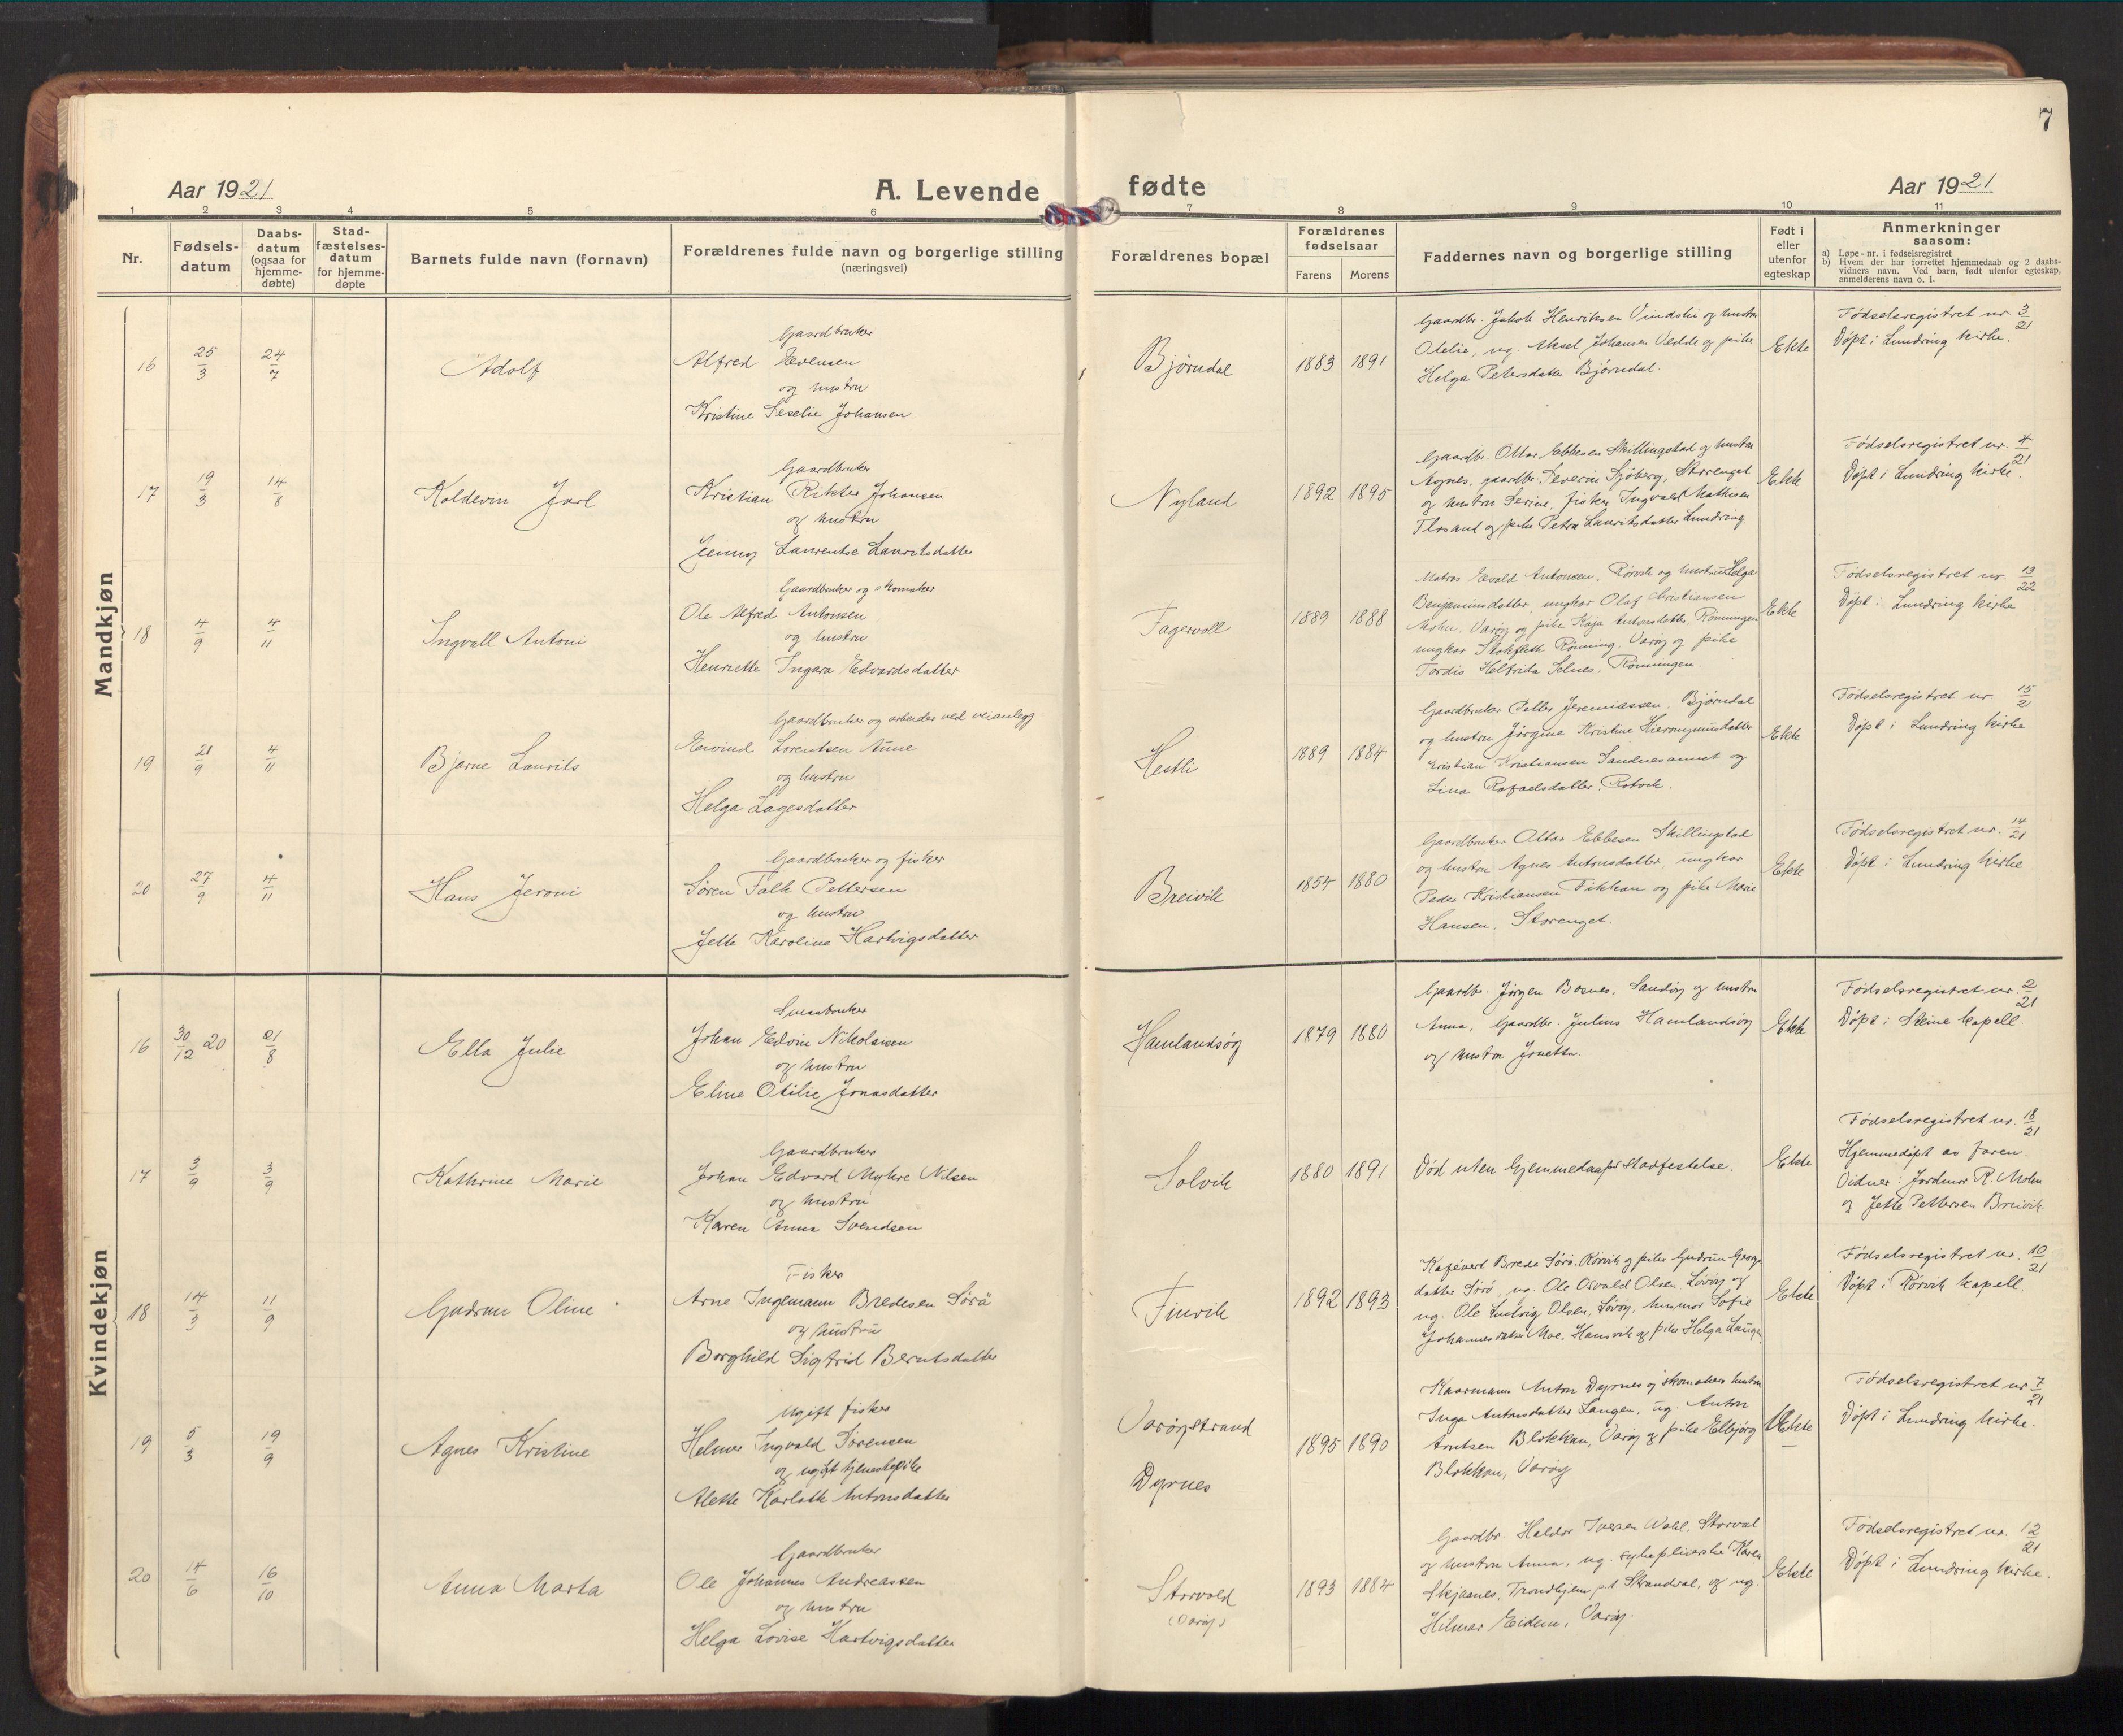 7
Aar 1921
A. Levende
fødte
Aar 1921
1 2 3 4 5 6 7 8 9 10 11
Nr.
Fødsels-
datum
Daabs-
datum
(ogsaa for
hjemme-
døbte)
Stad-
fæstelses-
datum
for hjemme-
døpte
Barnets fulde navn (fornavn)
Forældrenes fulde navn og borgerlige stilling
(næringsvei)
Forældrenes bopæl
Forældrenes
fødselsaar
Farens Morens
Faddernes navn og borgerlige stilling
Født i
eller
utenfor
egteskap
Anmerkninger
saasom:
a) Løpe-nr. i fødselsregistret
b) Hvem der har forrettet hjemmedaab og 2 daabs-
vidners navn. Ved barn, født utenfor egteskap,
anmelderens navn o. l.
Mandkjøn
16 25/3 24/7 Adolf
Gaardbruker
Alfred Evensen
og hustru
Kristine Seselie Johansen
Bjørndal 1883 1891
Gaardbr. Jakob Henriksen Vindslie og hustru
Otelie, ug. Aksel Johansen Vedde og pike
Helga Petersdatter Bjørndal.
Ekte
Fødselsregistret nr. 3/21
Døpt i Lundring kirke.
17 19/3 14/8 Koldevin Jarl
Gaardbruker
Kristian Rikter Johansen
og hustru
Jenny Laurentse Lauritsdatter
Nyland 1892 1895
Gaardbr. Ottar Ebbesen Skillingstad og hustru
Agnes, gaardbr. Severin Sjøberg, Storenget
og hustru Serine, fisker Ingvald Mathisen
Flosand og pike Petra Lauritsdatter Lundring
Ekte
Fødselsregistret nr. 4/21
Døpt i Lundring kirke.
18 4/9 4/11 Ingvall Antoni
Gaardbruker og skomaker
Ole Alfred Antonsen
og hustru
Henriette Ingara Edvardsdatter
Fagervoll 1889 1888
Matros Evald Antonsen, Rørvik og hustru Helga
Benjaminsdatter, ungkar Olaf Christiansen
Mohn, Varøy og pike Kaja Antonsdatter, Rønningen
ungkar Stokfleth Rønning, Varøy og pike
Tordis Helfrida Selnes, Rønningen
Ekte
Fødselsregistret nr. 13/22
Døpt i Lundring kirke
19 21/9 4/11 Bjarne Laurits
Gaardbruker og arbeider ved veianlegg
Eivind Lorentsen Aune
og hustru
Helga Lagesdatter
Hestli 1889 1884
Gaardbruker Petter Jeremiassen, Bjørndal
og hustru Jørgine Kristine Hieronymusdatter
Kristian Kristiansen Sandnesaunet og
Lina Rafaelsdatter, Rotvik.
Ekte
Fødselsregistret nr. 15/21
Døpt i Lundring kirke
20 27/9 4/11 Hans Jeroni
Gaardbruker og fisker
Søren Falk Pettersen
og hustru
Jette Karoline Hartvigsdatter
Breivik 1854 1880
Gaardbruker Ottar Ebbesen Skillingstad
og hustru Agnes Antonsdatter, ungkar
Peder Kristiansen Fikkan og pike Marie
Hansen, Storenget.
Ekte
Fødselsregistret nr. 14/21
Døpt i Lundring kirke
Kvindekjøn
16 30/12 20 21/8 Ella Julie
Smaabruker
Johan Edvin Nikolaisen
og hustru
Eline Otilie Jonasdatter
Hamlandsøy 1879 1880
Gaardbr. Jørgen Bosnes, Sandøy og hustru
Anna, Gaardbr. Julius Hamlandsøy
og hustru Jonetta.
Ekte
Fødselsregistret nr. 2/21
Døpt i Steine kapell.
17 3/9 3/9 Kathrine Marie
Gaardbruker
Johan Edvard Myhre Nilsen
og hustru
Karen Anna Svendsen
Solvik 1880 1891
Død uten hjemmedaaps Stadfestelse.
Ekte
Fødselsregistret nr. 18/21
Hjemmedøpt av faren.
Vidner: Jordmor R. Mohn
og Jette Pettersen Breivik.
18 14/3 11/9 Gudrun Oline
Fisker
Arne Ingemann Bredesen Sørø
og hustru
Borghild Sigfrid Berntsdatter
Finvik 1892 1893
Kafévert Brede Sørø, Rørvik og pike Gudrun Georg-
datter Sørø, ug. Ole Osvald Olsen, Lovøy og
ug. Ole Ludvig Olsen, Lovøy, husmor Sofie
Johannesdatter Moe, Hansvik og pike Helga Laugen
Ekte
Fødselsregistret nr. 10/21
Døpt i Rørvik kapell.
19 5/3 19/9 Agnes Kristine
Ugift fisker
Helmer Ingvald Sørensen
og ugift tjenestepike
Alette Karlotte Antonsdatter
Varøystrand
Dyrnes
1895 1890
Kaarmann Anton Dyrnes og skomakers hustru
Inga Antonsdatter Langen, ug. Anton
Arntsen Blokkan, Varøy og pike Elbjørg
Blokkan, Varøy
Uekte
Fødselsregistret nr 7/21
Døpt i Lundring kirke.
20 14/6 16/10 Anna Marta
Gaardbruker
Ole Johannes Andreassen
og hustru
Helga Lovise Hartvigsdatter
Storvold
(Varøy)
1893 1884
Gaardbr. Haldor Iversen Wahl, Storval
og hustru Anna, ug. sykepleierske Karen
Skjaanes, Trondhjem p.t. Strandval, og ug.
Hilmar Eidem, Varøy.
Ekte
Fødselsregistret nr. 12/21
Døpt i Lundring kirke.